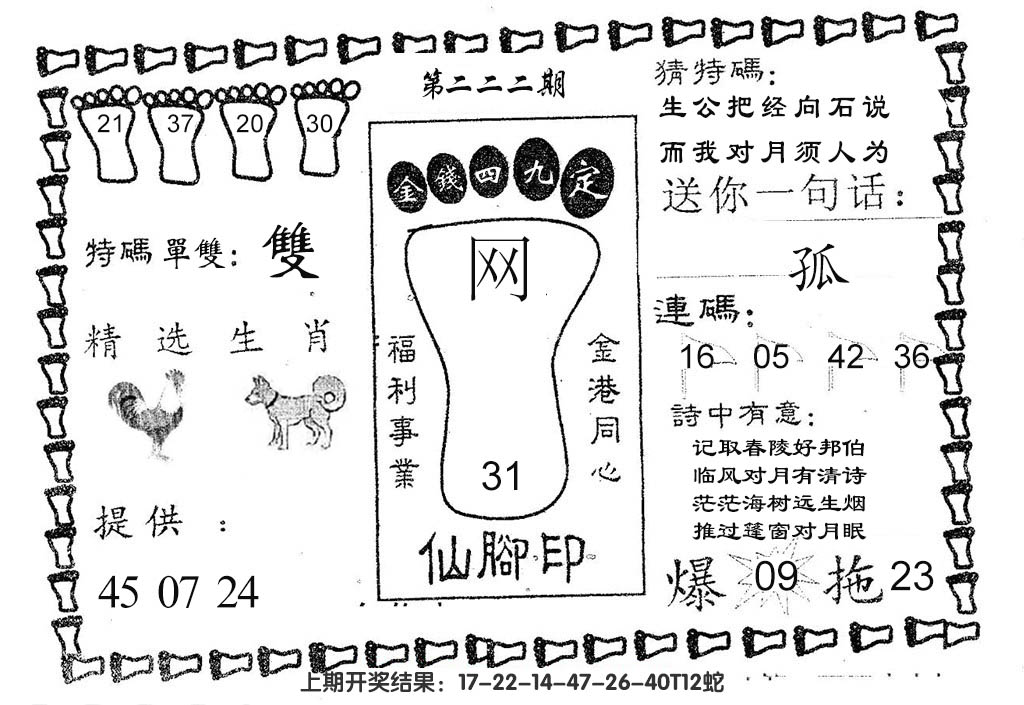 第二二二期
21 37 20 30
特碼單雙：雙
精选生肖
提供：
45 07 24
金錢四九定
网
福利事業
金港同心
31
仙腳印
猜特碼：
生公把经向石说
而我对月须人为
送你一句话：
孤
連碼：
16 05 42 36
詩中有意：
记取春陵好邦伯
临风对月有清诗
茫茫海树远生烟
推过篷窗对月眠
爆 09 拖 23
上期开奖结果：17-22-14-47-26-40T12蛇